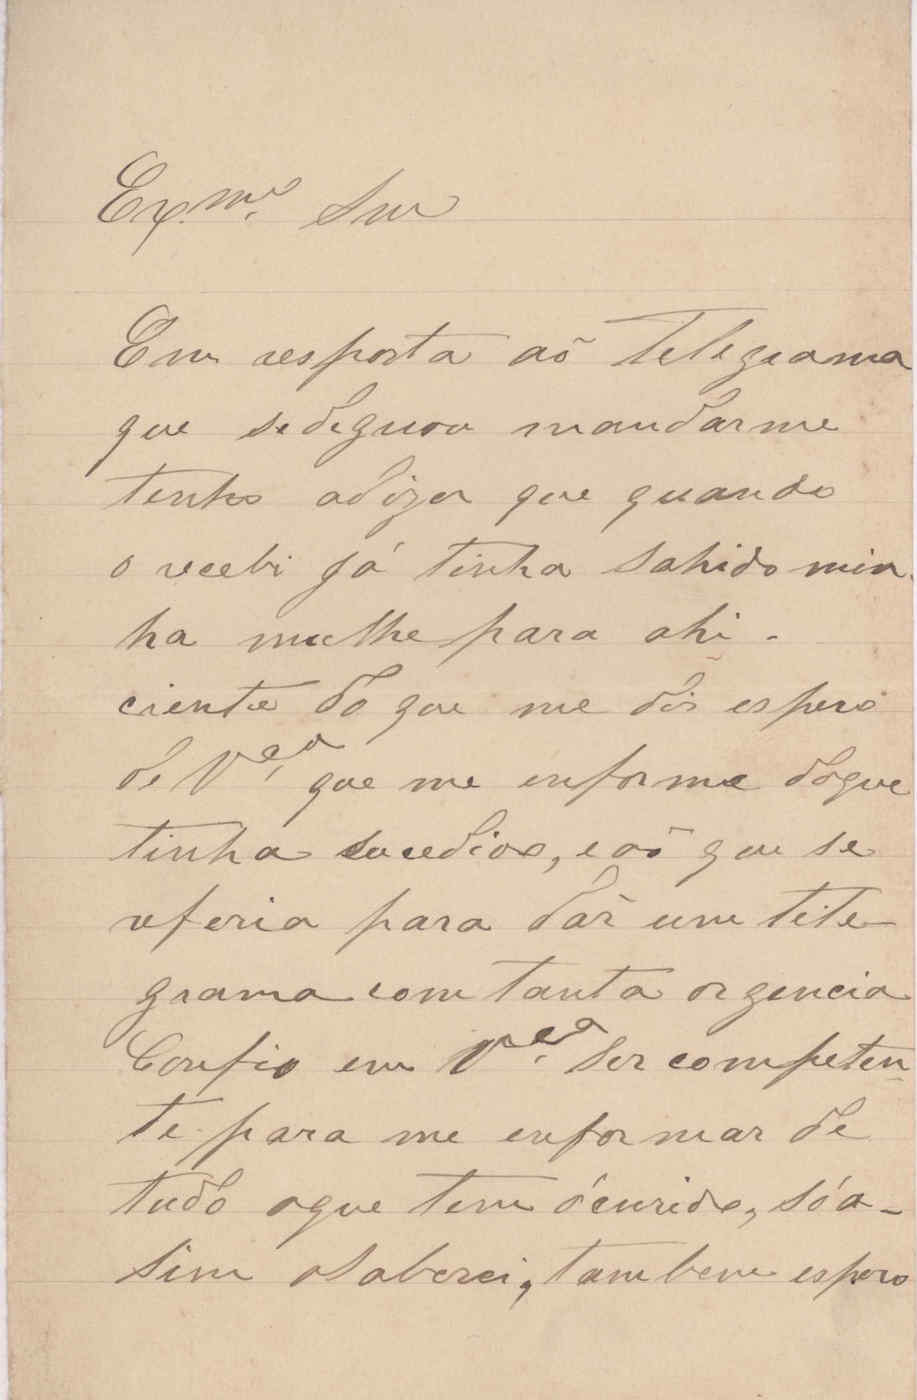 Ex.mo Snr
Em resposta aõ Telegrama
que sedegnou mandarme
tenho adizer que quando
o recebi já tinha sahido min
ha mulhe para ahi -
ciente do que me diz espero
de V.ª que me enforme doque
tinha sucedido, e aõ que se
referia para dar um tele
grama com tanta orgencia
Confio em V.ª ser competen
te para me enformar de
tudo oque tem ócurido, só a-
sim o Saberei, tambem espero